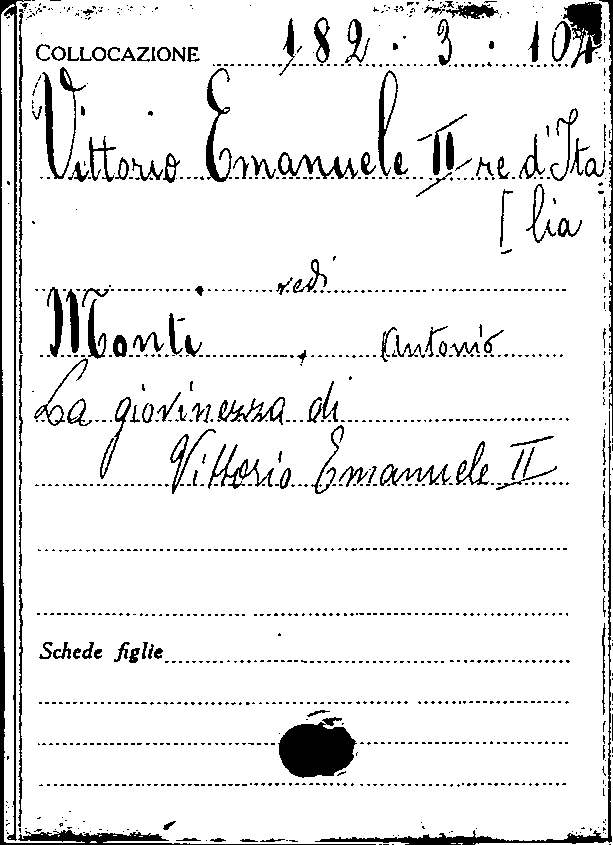 COLLOCAZIONE 182 · 3 · 104
Vittorio Emanuele II re d'Ita
[lia
vedi
Monti, Antonio
La giovinezza di
Vittorio Emanuele II
Schede figlie